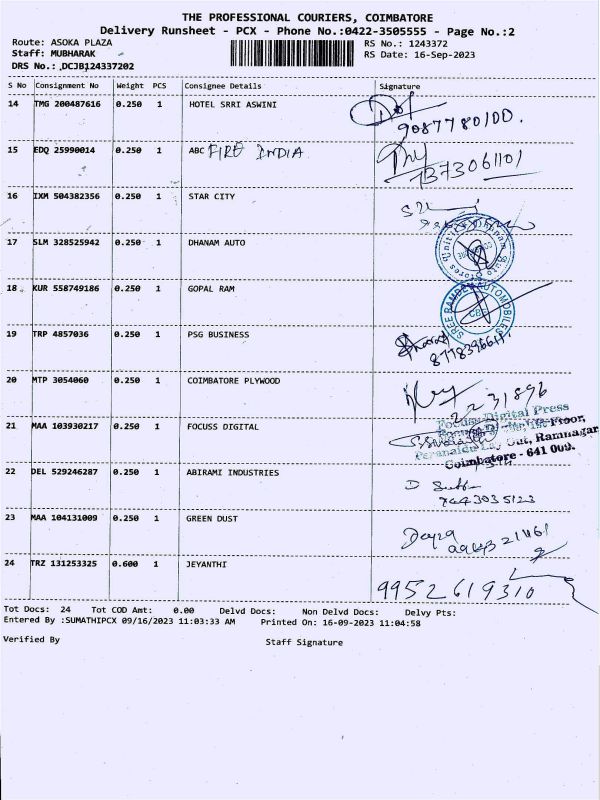 THE PROFESSIONAL COURIERS, COIMBATORE
Delivery Runsheet - PCX - Phone No.:0422-3505555 - Page No.:2
Route: ASOKA PLAZA RS No.: 1243372
Staff: MUBHARAK RS Date: 16-Sep-2023
DRS No.: DCJB124337202
S No Consignment No Weight PCS Consignee Details Signature
14 TMG 200487616 0.250 1 HOTEL SRRI ASWINI
9087780100.
15 EDQ 25990014 0.250 1 ABC FIRE INDIA
7373061101
16 IXM 504382356 0.250 1 STAR CITY
17 SLM 328525942 0.250 1 DHANAM AUTO
18 KUR 558749186 0.250 1 GOPAL RAM
SREE RAMDEV AUTOMOBILES
CBE
19 TRP 4857036 0.250 1 PSG BUSINESS
20 MTP 3054060 0.250 1 COIMBATORE PLYWOOD
21 MAA 103930217 0.250 1 FOCUSS DIGITAL
Focuss Digital Press
Floor,
Ramnagar
Coimbatore - 641 009.
22 DEL 529246287 0.250 1 ABIRAMI INDUSTRIES
23 MAA 104131009 0.250 1 GREEN DUST
24 TRZ 131253325 0.600 1 JEYANTHI
9952619310
Tot Docs: 24 Tot COD Amt: 0.00 Delvd Docs: Non Delvd Docs: Delvy Pts:
Entered By :SUMATHIPCX 09/16/2023 11:03:33 AM Printed On: 16-09-2023 11:04:58
Verified By Staff Signature